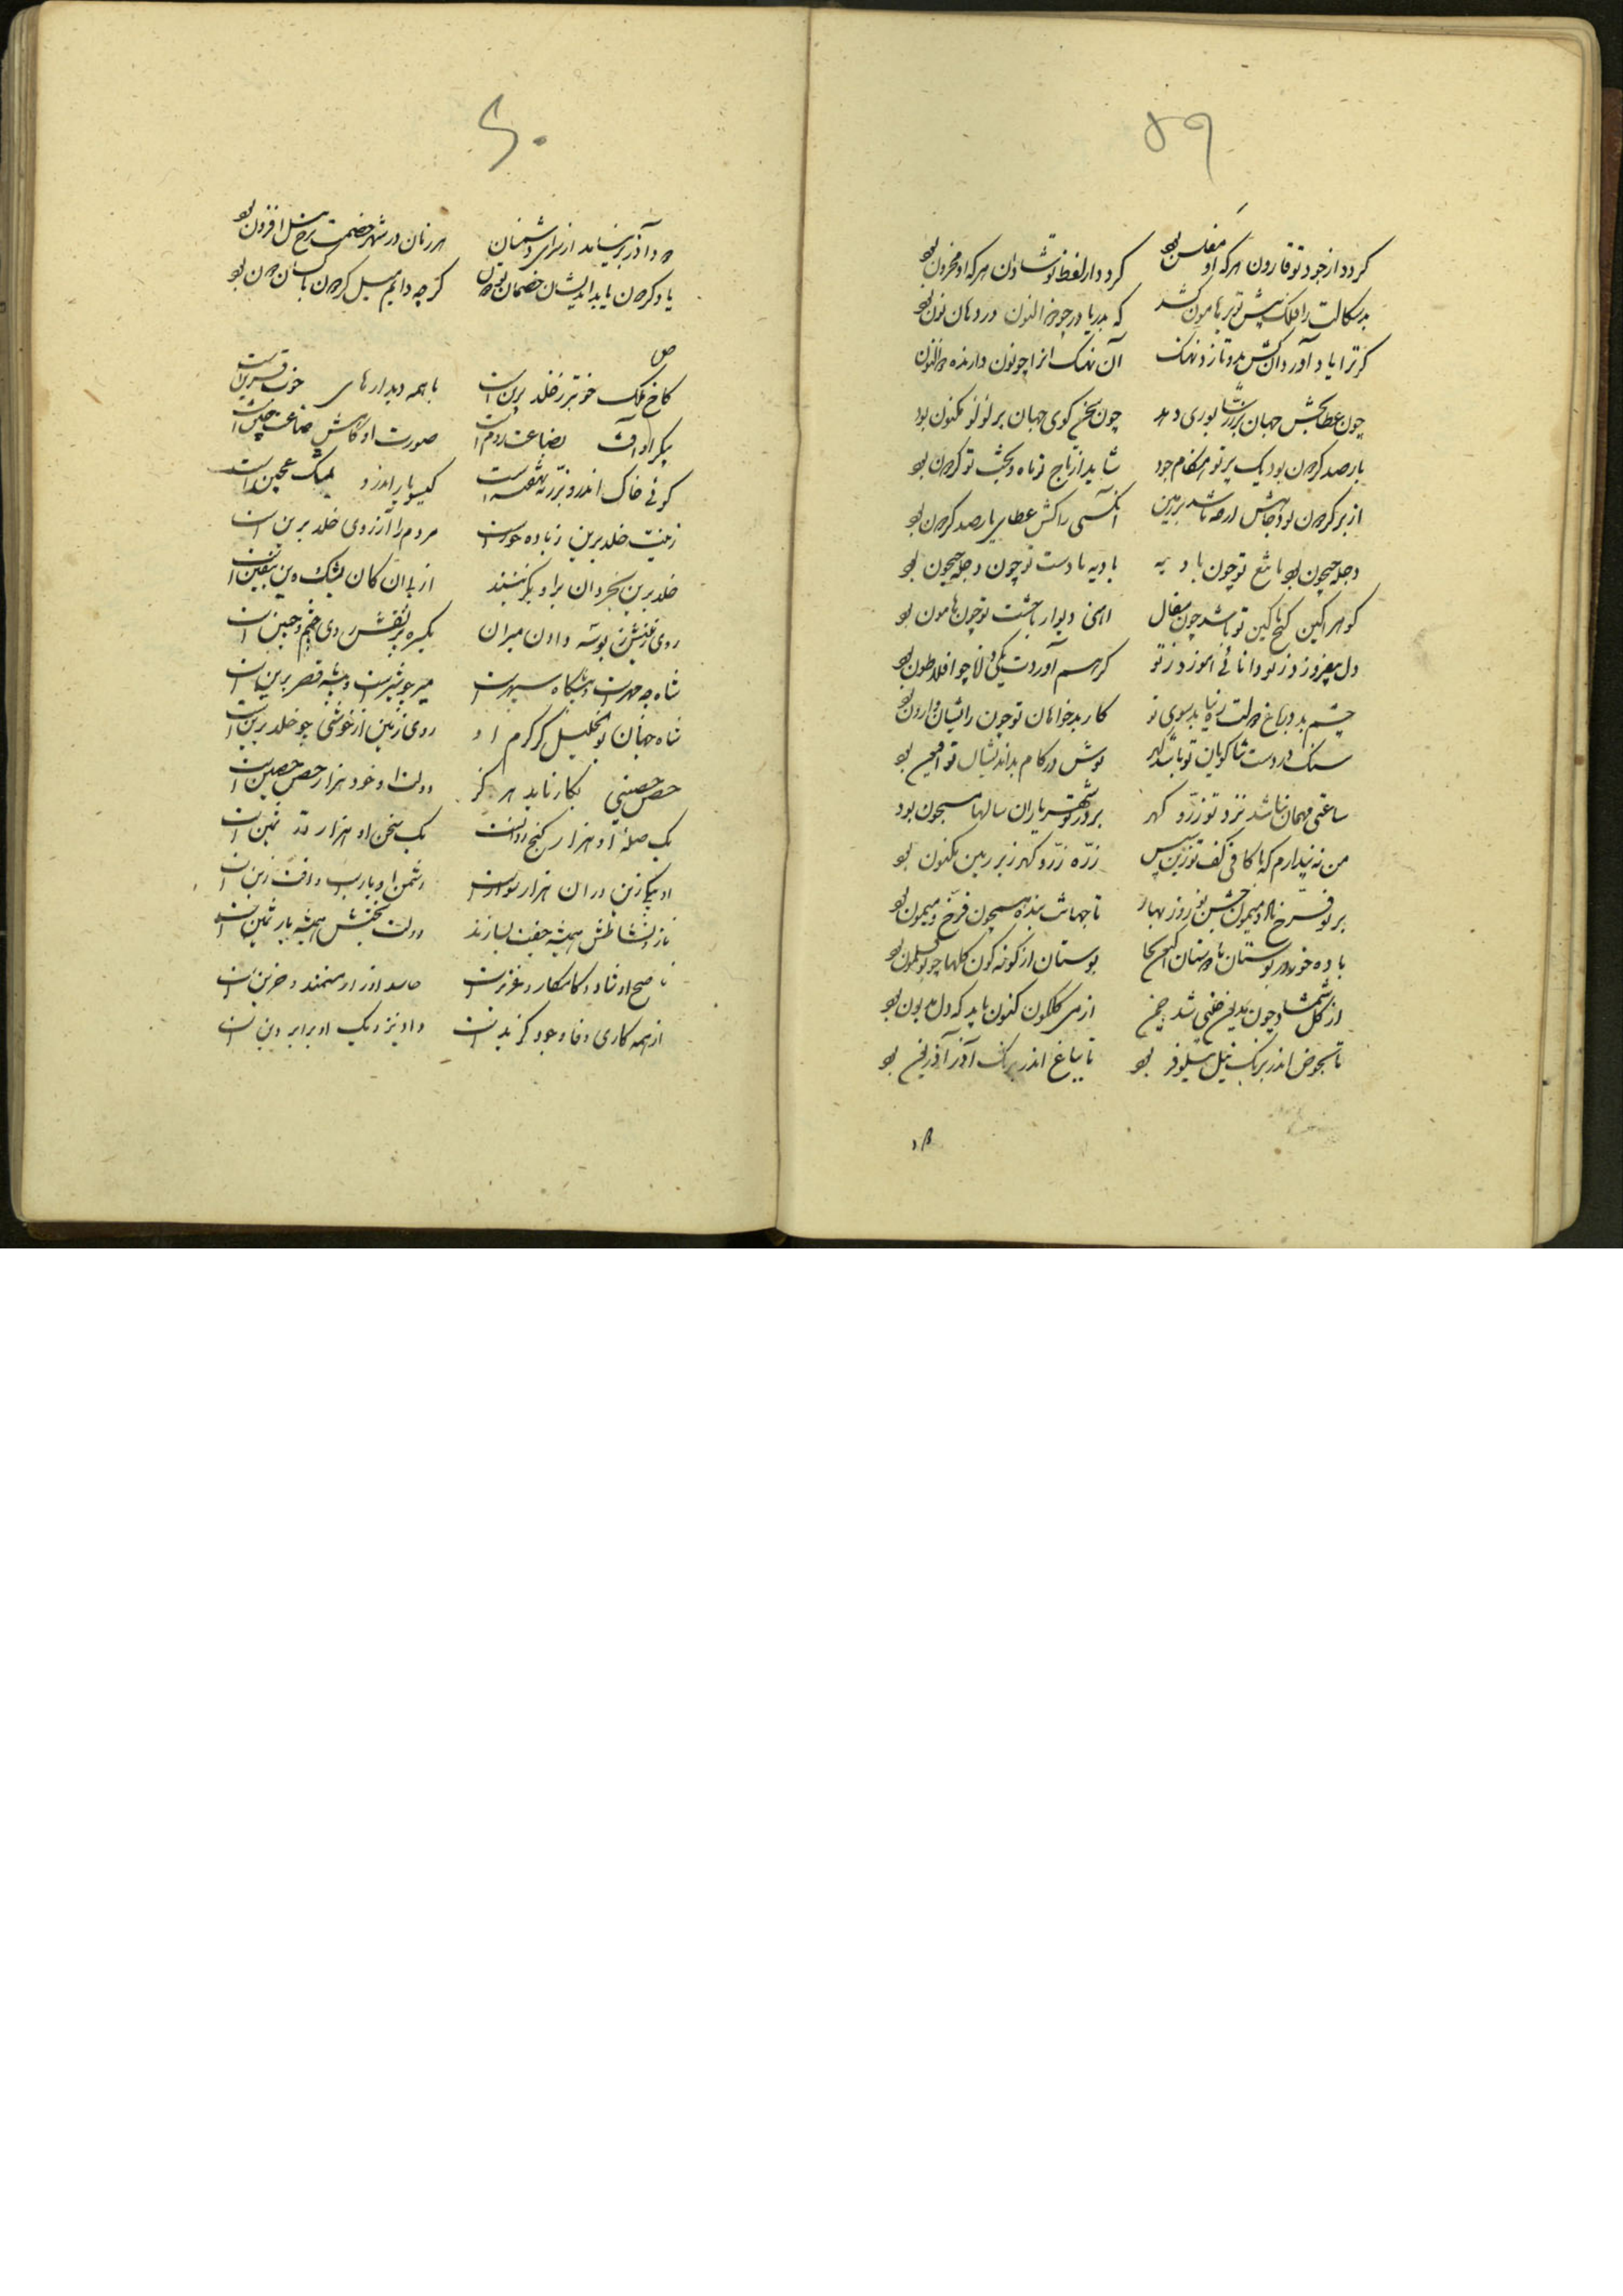 ۵۹
کردد از جود تو قارون هرکه او مفلس بود
کردد از لفظ تو شادان هرکه او محزون بود
بدسکالت را فلک پیش تو بر هامون کشد
که بدریا در چو ذوالنون در دهان نون بود
کر ترا یاد آورد آنکش بدو تازد نهنک
آن نهنک انرا چو نون دارنده ذوالنون
چون عطا بخش جهان بر زر شاپوری دهد
چون سخن کوی جهان بر لؤلؤ مکنون بود
بار صد کردون بود یک بر تو هنکام جود
شاید ار تاج تو ماه و تخت تو کردون بود
از بر کردون بود جاهش ار چه باشد بر زمین
آنکسی را کش عطا بار صد کردون بود
دجله جیحون بود با تیغ تو چون بادیه
بادیه با دست تو چون دجله جیحون بود
کوهر آکین کنج با کین تو باشد چون سفال
آهنی دیوار با خشت تو چون هامون بود
دل بیفروزد ز تو دانائی آموزد ز تو
کر هم آوردت یکی دانا چو افلاطون بود
چشم بد در باغ دولت ره نیابد سوی تو
کار بدخواهان تو چون رایشان وارون بود
سنک در دست ثنا کویان تو باشد کهر
نوش در کام بداندیشان تو افیون بود
ساعتی مهمان نباشد نزد تو زر و کهر
بر در تو شهریاران سالها مسجون بود
من نه پندارم که با کافی کف تو زین سپس
زره زر و کهر زیر زمین مکنون بود
بر تو فرخ باد و میمون جشن نوروز بهار
تا جهانت بنده همچون فرخ و میمون بود
باده خور در بوستان با دوستان اکنون کجا
بوستان از کونه کون کلها چو بوقلمون بود
از کل و شمشاد چون بدین ختنی شد چمن
از می کلکون کنون باید که دل مرهون بود
تا بحوض اندر برنک نیل نیلوفر بود
تا بباغ اندر برنک آذر آذریون بود
۶۰
دود آذر بر نیامد از سرای دشمنان
هر زمان در شهر خصمت نرخ نیل افزون بود
یاد کردن باید اندیشان خصمان تو چون
کر چه دایم میل کردون با کسان دون بود
کاخ ملک خوبتر ز خلد برین است
با همه دیدارهای خوب قرین است
پیکر او آفت بضاعت روم است
صورت او کاهش صناعت چین است
کوئی خاک اندرو بزر نهفته است
کیسو یار اندرو بمشک عجین است
زینت خلد برین زیاده حور است
مردم را آرزوی خلد برین است
خلد برین بخردان برو بکزینند
از پی آن کان بشک و این بیقین است
روی زمینش ز بوسه دادن میران
یکسره پر نقش روی و چشم و جبین است
شاه چو مهر است و پیشکاه سپهر است
میر چو شیر است و بیشه قصر برین است
شاه جهان بو الخلیل کز کرم او
روی زمین از خوشی چو خلد برین است
حصن حصینی بکار ناید هر کز
دولت او خود هزار حصن حصین است
یک صله او هزار کنج روانست
یک سخن او هزار در ثمین است
او بیکی زین در آن هزار سوار است
دشمن او یا رب و آفت زین است
ناز و نشاطش همیشه جفت یسارند
دولت و بختش همیشه یار یمین است
ناصح او شاد و کامکار و عزیز است
حاسد او زار و مستمند و حزین است
از همه کاری وفا و جود کزیدست
داد بنزدیک او برابر دین است